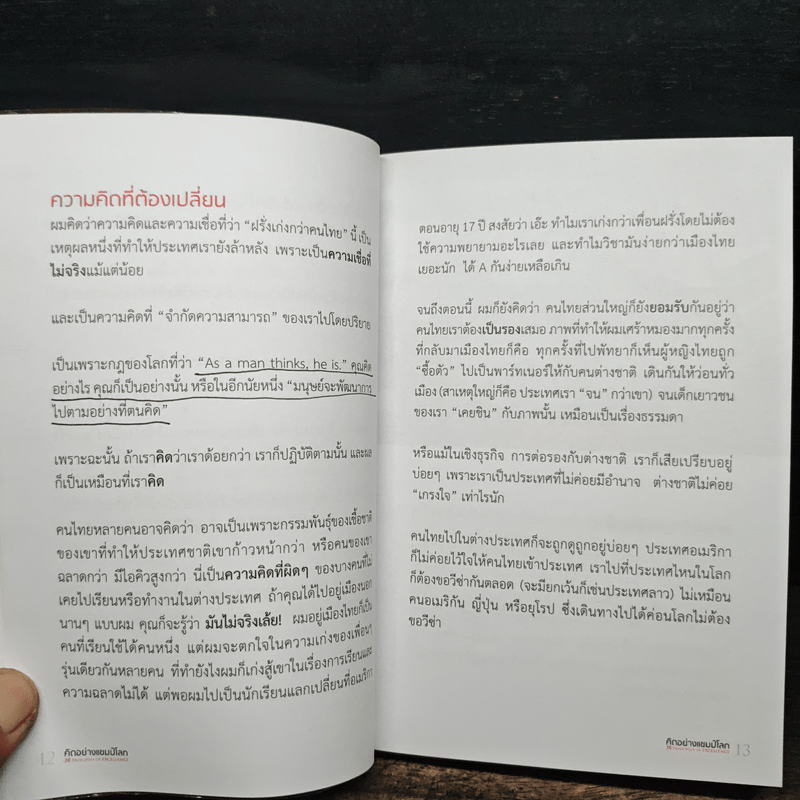 ความคิดที่ต้องเปลี่ยน
ผมคิดว่าความคิดและความเชื่อที่ว่า “ฝรั่งเก่งกว่าคนไทย” นี้ เป็น
เหตุผลหนึ่งที่ทำให้ประเทศเรายังล้าหลัง เพราะเป็นความเชื่อที่
ไม่จริงแม้แต่น้อย
และเป็นความคิดที่ “จำกัดความสามารถ” ของเราไปโดยปริยาย
เป็นเพราะกฎของโลกที่ว่า “As a man thinks, he is.” คุณคิด
อย่างไร คุณก็เป็นอย่างนั้น หรือในอีกนัยหนึ่ง “มนุษย์จะพัฒนาการ
ไปตามอย่างที่ตนคิด”
เพราะฉะนั้น ถ้าเราคิดว่าเราด้อยกว่า เราก็ปฏิบัติตามนั้น และผล
ก็เป็นเหมือนที่เราคิด
คนไทยหลายคนอาจคิดว่า อาจเป็นเพราะกรรมพันธุ์ของเชื้อชาติ
ของเขาที่ทำให้ประเทศชาติเขาก้าวหน้ากว่า หรือคนของเขา
ฉลาดกว่า มีไอคิวสูงกว่า นี่เป็นความคิดที่ผิดๆ ของบางคนที่ไม่
เคยไปเรียนหรือทำงานในต่างประเทศ ถ้าคุณได้ไปอยู่เมืองนอก
นานๆ แบบผม คุณก็จะรู้ว่า มันไม่จริงเล้ย! ผมอยู่เมืองไทยก็เป็น
คนที่เรียนใช้ได้คนหนึ่ง แต่ผมจะตกใจในความเก่งของเพื่อนๆ
รุ่นเดียวกันหลายคน ที่ทำยังไงผมก็เก่งสู้เขาในเรื่องการเรียนและ
ความฉลาดไม่ได้ แต่พอผมไปเป็นนักเรียนแลกเปลี่ยนที่อเมริกา
12 คิดอย่างแชมป์โลก
26 PRINCIPLES OF EXCELLENCE
ตอนอายุ 17 ปี สงสัยว่า เอ๊ะ ทำไมเราเก่งกว่าเพื่อนฝรั่งโดยไม่ต้อง
ใช้ความพยายามอะไรเลย และทำไมวิชามันง่ายกว่าเมืองไทย
เยอะนัก ได้ A กันง่ายเหลือเกิน
จนถึงตอนนี้ ผมก็ยังคิดว่า คนไทยส่วนใหญ่ก็ยังยอมรับกันอยู่ว่า
คนไทยเราต้องเป็นรองเสมอ ภาพที่ทำให้ผมเศร้าหมองมากทุกครั้ง
ที่กลับมาเมืองไทยก็คือ ทุกครั้งที่ไปพัทยาก็เห็นผู้หญิงไทยถูก
“ซื้อตัว” ไปเป็นพาร์ทเนอร์ให้กับคนต่างชาติ เดินกันให้ว่อนทั่ว
เมือง (สาเหตุใหญ่ก็คือ ประเทศเรา “จน” กว่าเขา) จนเด็กเยาวชน
ของเรา “เคยชิน” กับภาพนั้น เหมือนเป็นเรื่องธรรมดา
หรือแม้ในเชิงธุรกิจ การต่อรองกับต่างชาติ เราก็เสียเปรียบอยู่
บ่อยๆ เพราะเราเป็นประเทศที่ไม่ค่อยมีอำนาจ ต่างชาติไม่ค่อย
“เกรงใจ” เท่าไรนัก
คนไทยไปในต่างประเทศก็จะถูกดูถูกอยู่บ่อยๆ ประเทศอเมริกา
ก็ไม่ค่อยไว้ใจให้คนไทยเข้าประเทศ เราไปที่ประเทศไหนในโลก
ก็ต้องขอวีซ่ากันตลอด (จะมียกเว้นก็เช่นประเทศลาว) ไม่เหมือน
คนอเมริกัน ญี่ปุ่น หรือยุโรป ซึ่งเดินทางไปได้ค่อนโลกไม่ต้อง
ขอวีซ่า
คิดอย่างแชมป์โลก 13
26 PRINCIPLES OF EXCELLENCE